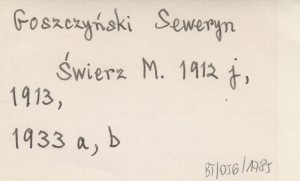 Goszczyński Seweryn
Świerz M. 1912 j,
1913,
1933 a, b
BT/OIG/1785